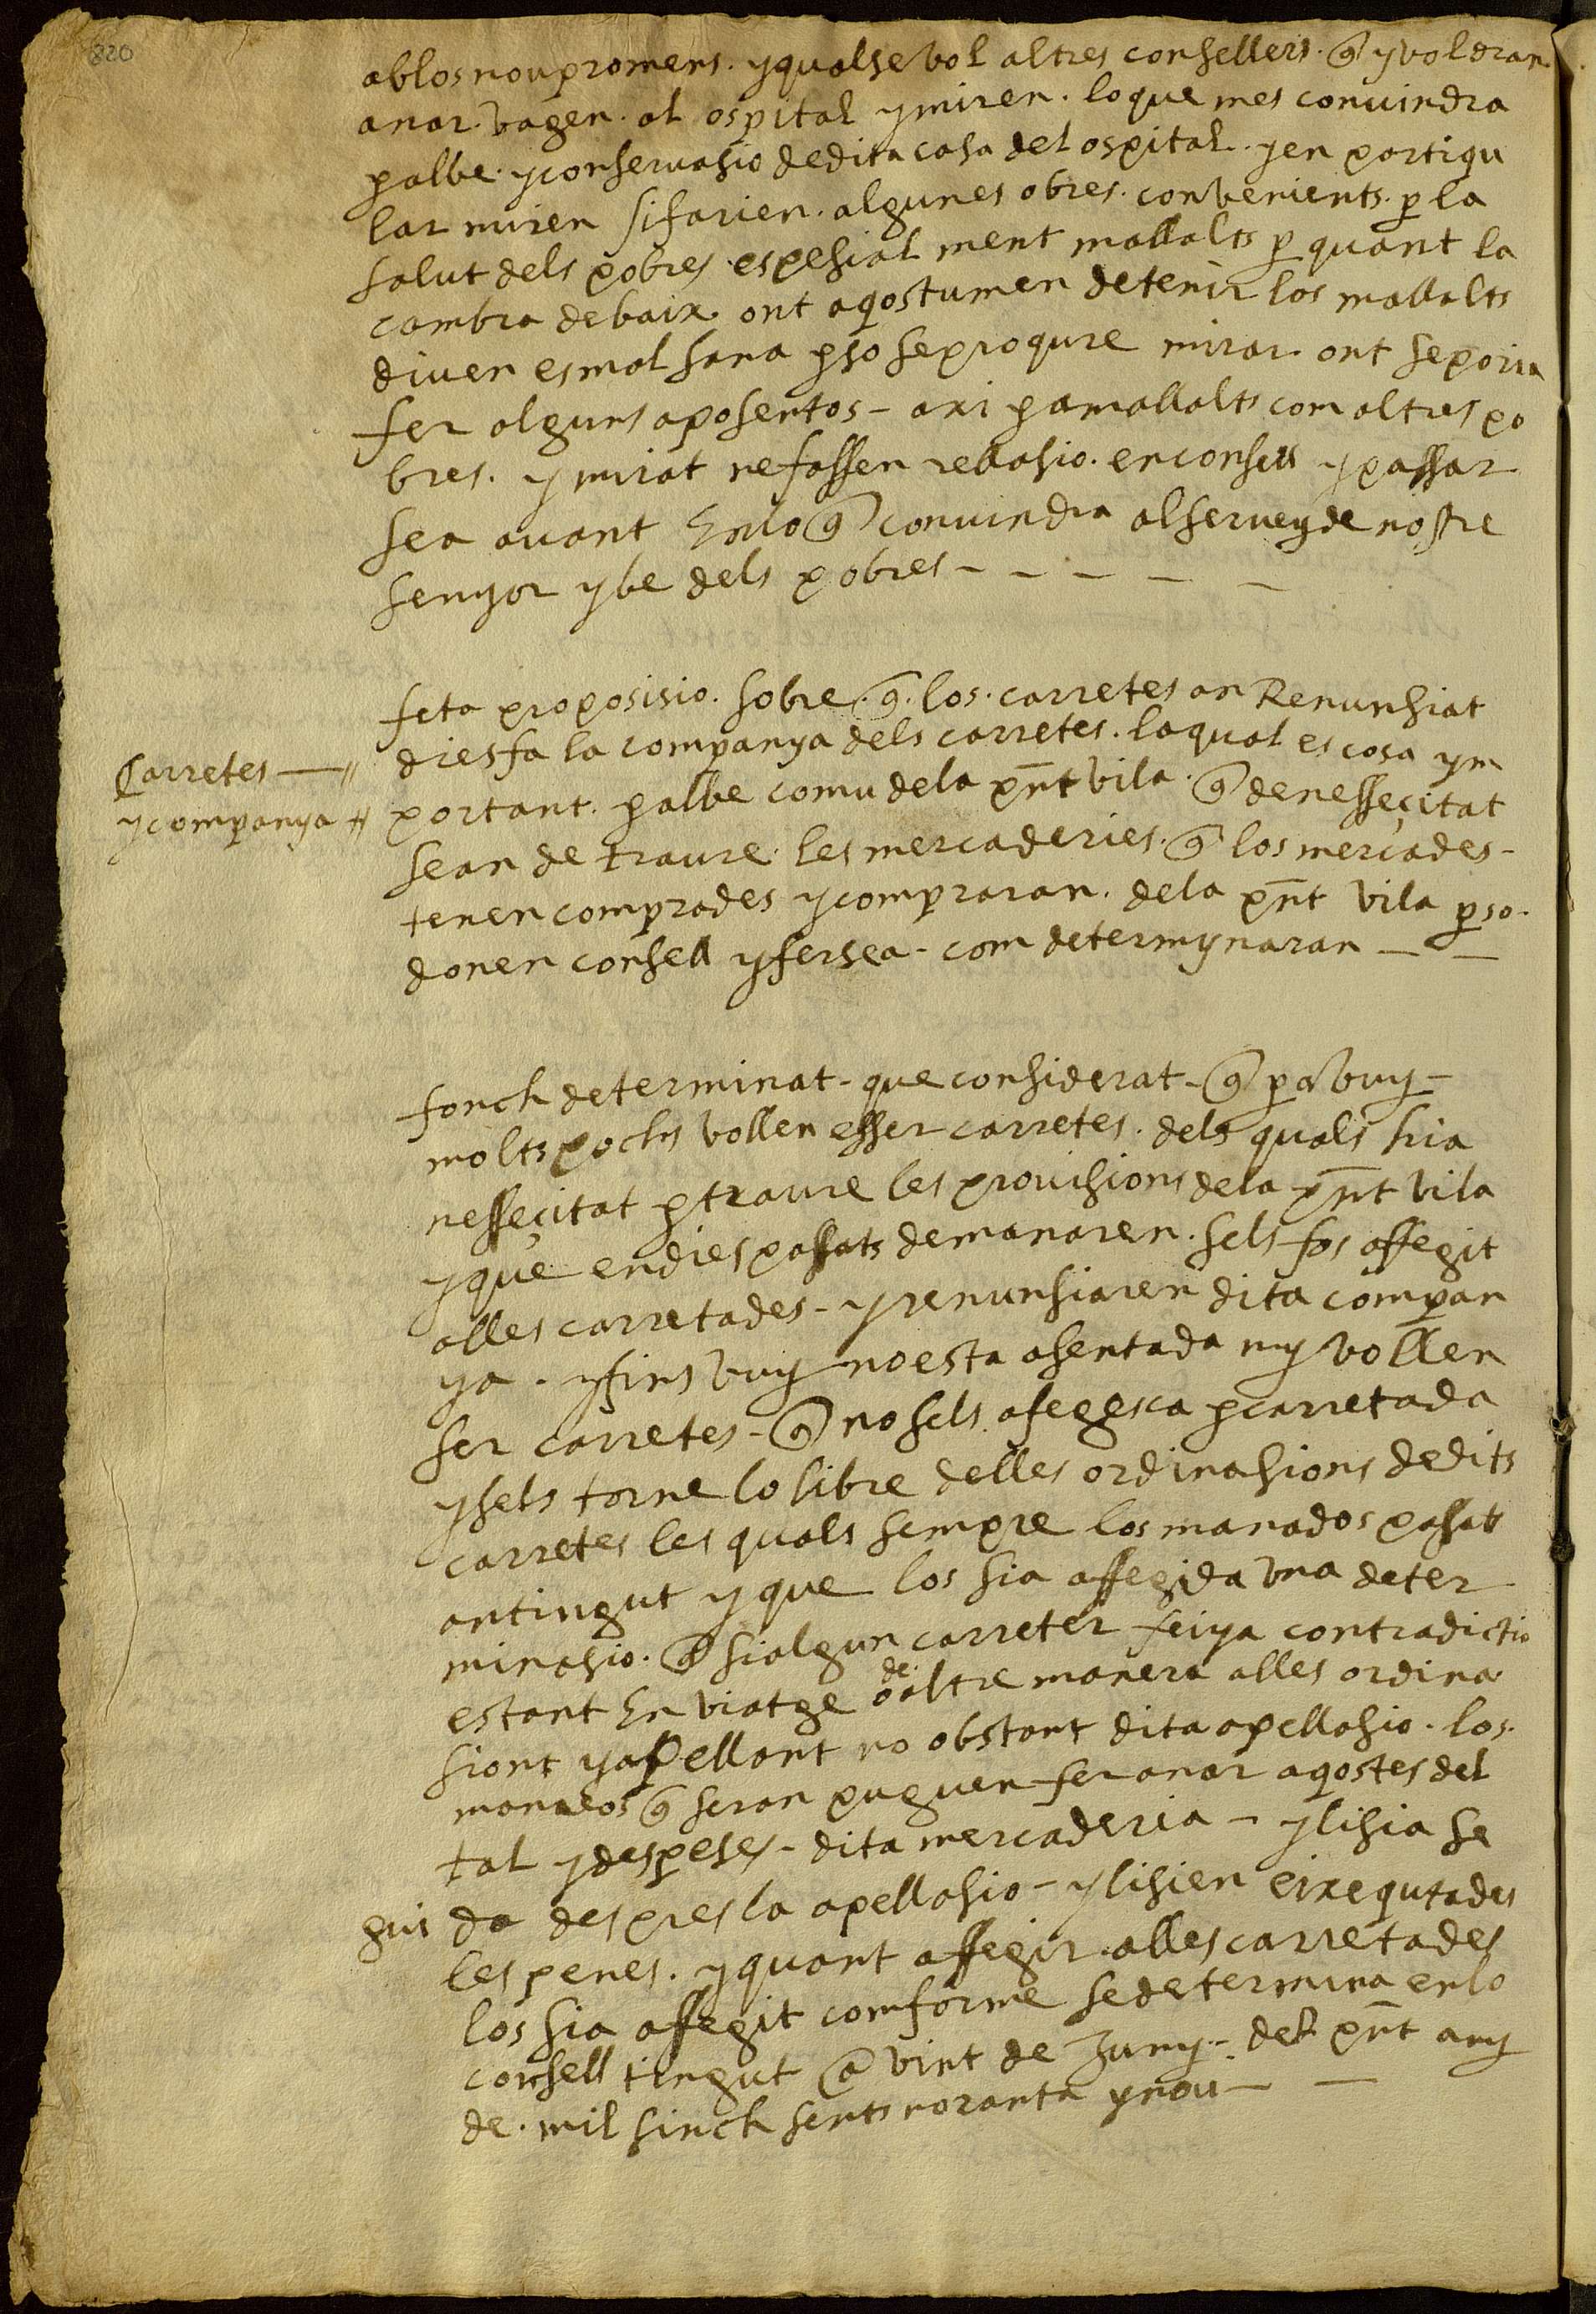 820
ablos nou promens. y qualsevol altres consellers. q̃ y voldran
anar. vagen. al ospital y miren. lo que mes convindra
p albe. y conservasio de dita casa del ospital. y en partiqu
lar miren si farien. algunes obres. convenients. p la
salut dels pobres. espesial ment mallalts p quant la
cambra debaix. ont aqostumen detenir los mallalts
diuen es mal sana p so se proqure mirar. ont se poria
fer alguns aposentos - axi p a mallalts com altres po
bres. y mirat ne fassen rellasio. en consell y passar
sea avant En lo q̃ convindra al servey de nostre
senyor y be dels pobres - - - - -
feta proposisio. sobre. q̃. los. carretes an Renunsiat
dies fa la companya dels carretes. la qual es cosa ym
Carretes —//
portant. p al be comu de la pñt vila. q̃ de nesseçitat
y companya #
sean de traure. les mercaderies. q̃ los mercades -
tenen comprades y compraran. dela pñt vila p so.
donen consell y fersea - com determynaran — —
fonch determinat - que considerat - q̃ p a vuy -
molts pochs vollen esser carretes. dels quals hia
nesseçitat p traure les provisions dela pñt vila
y que en dies passats demanaren. sels fos affegit
alles carretades - y renunsiaren dita compan
ya. y fins vuy no esta asentada ny vollen
ser carretes - q̃ no sels afegesca p carretada
y sels torne lo libre delles ordinasions de dits
carretes les quals sempre los manados passats
an tingut y que los sia affegida una deter
minasio. q̃ si algun carreter feiya contradictio
estant En viatge o de altre manera alles ordina
sions y apellant no obstant dita apellasio. los.
manados q̃ seran puguen fer anar aqostes del
tal y despeses - dita mercaderia - y li sia se
guida despres la apellasio - y li sien eixequtades
les penes. y quant affegir. alles carretades
los sia affegit comforme se determina en lo
consell tingut a vint de Juny - del pñt any
de. mil sinch sents noranta y nou — —